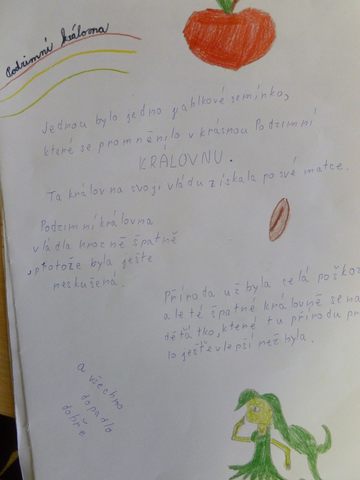 Podzimní královna
Jednou bylo jedno jablkové semínko,
které se proměnilo v krásnou Podzimní
KRÁLOVNU.
Ta královna svoji vládu získala po své matce.
Podzimní královna
vládla hrozně špatně
, protože byla ješte
nezkušená.
Příroda už byla celá poškoz
ale té špatné královně se na
děťátko, které tu přírodu pr
lo ještě v lepší než byla.
a všechno
dopadlo
dobře